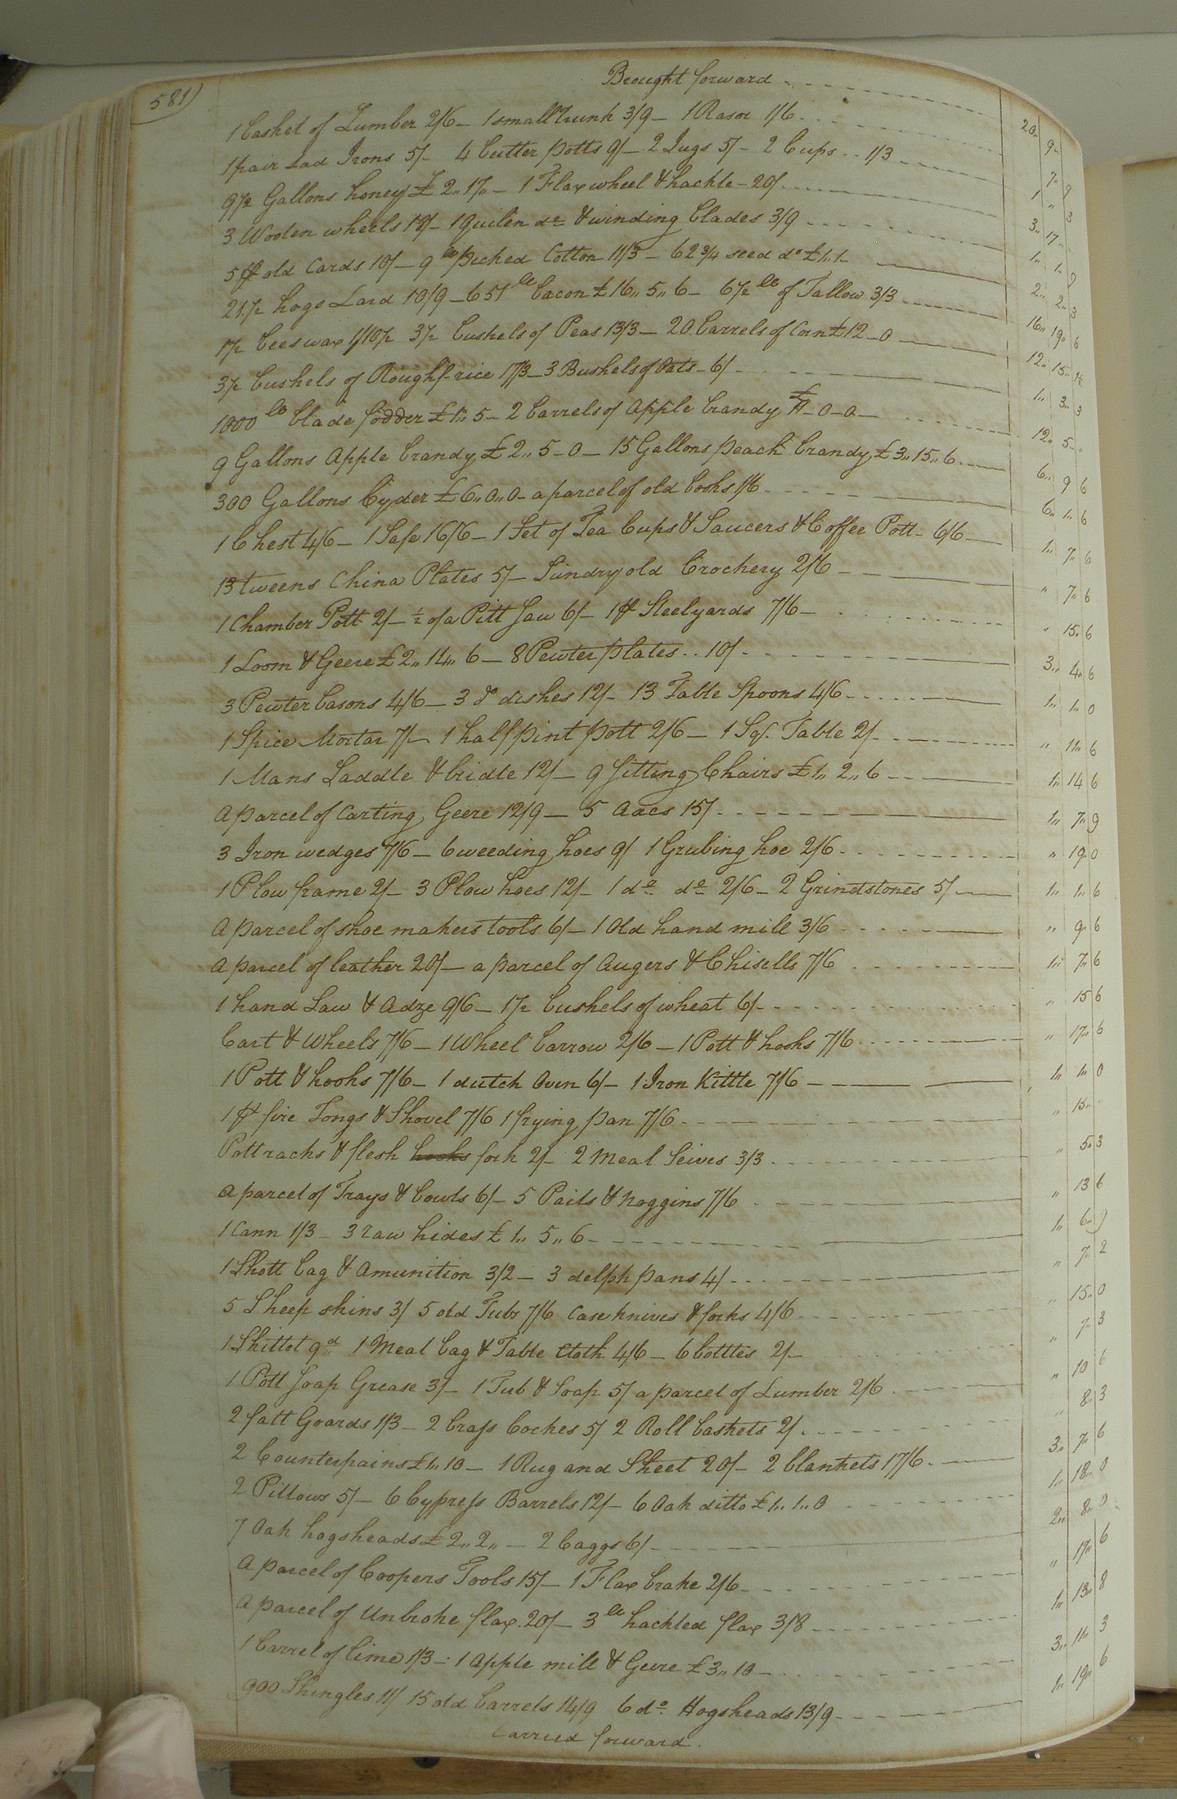 581)
Brought forward
1 basket of Lumber 2/6 – 1 small trunk 3/9 – 1 Rasor 1/6
1 pair sad Irons 5/- 4 butter potts 9/ – 2 Jugs 5/- 2 Cups 1/3
9½ Gallons honey £ 2,, 17,, – 1 Flax wheel & hackle – 20/
3 Woolen wheels 18/ – 1 Quilen do & winding blades 3/9
5 pr old Cards 10/ – 9 lb picked Cotton 11/3 – 62¾ seed do £ 1,, 1
21½ hogs Lard 10/9 – 651 lb bacon £ 16,, 5,, 6 – 6½ lb of Tallow 3/3
1½ bees wax 1/10½ 3½ bushels of Peas 13/3 – 20 barrels of Corn £ 12 – 0
3½ bushels of Rough rice 17/3 – 3 Bushels of Oats – 6/
1000 lb blade fodder £ 1,, 5 – 2 barrels of Apple brandy £ 11 – 0 – 0
9 Gallons Apple brandy £ 2,, 5 – 0 – 15 Gallons peach brandy £ 3,, 15,, 6
300 Gallons Cyder £ 6,, 0,, 0 – a parcel of old books 1/6
1 Chest 4/6 – 1 Safe 16/6 – 1 Set of Tea Cups & Saucers & Coffee Pott – 6/6
13 tweens China Plates 5/ – Sundry old Crockery 2/6
1 Chamber Pott 2/ – ½ of a Pitt Saw 6/ – 1 pr Steelyards 7/6
1 Loom & Geere £ 2,, 14,, 6 – 8 Pewter plates 10/
3 Pewter basons 4/6 – 3 do dishes 12/ – 13 Table Spoons 4/6
1 Spice Mortar 7/ – 1 half pint pott 2/6 – 1 Sqr. Table 2/
1 Mans Saddle & bridle 12/ – 9 Sitting Chairs £ 1,, 2,, 6
a parcel of Carting Geere 12/9 – 5 Axes 15/
3 Iron wedges 7/6 – 6 weeding hoes 9/ 1 Grubing hoe 2/6
1 Plow frame 2/ – 3 Plow hoes 12/ – 1 do do 2/6 – 2 Grindstones 5/
a parcel of shoe makers tools 6/ – 1 Old hand mill 3/6
a parcel of leather 20/ – a parcel of Augers & Chisells 7/6
1 hand Saw & Adze 9/6 – 1½ bushels of wheat 6/
Cart & Wheels 7/6 – 1 Wheel barrow 2/6 – 1 Pott & hooks 7/6
1 Pott & hooks 7/6 – 1 dutch Oven 6/ – 1 Iron Kittle 7/6
1 pr fire Tongs & Shovel 7/6 1 frying pan 7/6
Pott racks & flesh hooks fork 2/ 2 Meal Seives 3/3
a parcel of Trays & bowls 6/ – 5 Pails & noggins 7/6
1 Cann 1/3 – 3 raw hides £ 1,, 5,, 6
1 Shott bag & Amunition 3/2 – 3 delph pans 4/
5 Sheep skins 3/ 5 old Tubs 7/6 Case knives & forks 4/6
1 Skillet 9d 1 Meal bag & Table Cloth 4/6 – 6 bottles 2/
1 Pott Soap Grease 3/ – 1 Tub & Soap 5/ a parcel of Lumber 2/6
2 fatt Goards 1/3 – 2 brass Cockes 5/ 2 Roll baskets 2/
2 Counterpains £ 1,, 10 – 1 Rug and Sheet 20/ – 2 blankets 17/6
2 Pillows 5/ – 6 Cypress Barrels 12/ – 6 Oak ditto £ 1,, 1,, 0
7 Oak hogsheads £ 2,, 2,, – 2 baggs 6/
a parcel of Coopers Tools 15/ – 1 Flax brake 2/6
a parcel of Unbroke flax 20/ – 3 lb hackled flax 3/8
1 barrel of lime 1/3 – 1 Apple mill & Geere £ 3,, 10
900 Shingles 11/ 15 old barrels 14/9 6 do Hogsheads 13/9
Carried forward